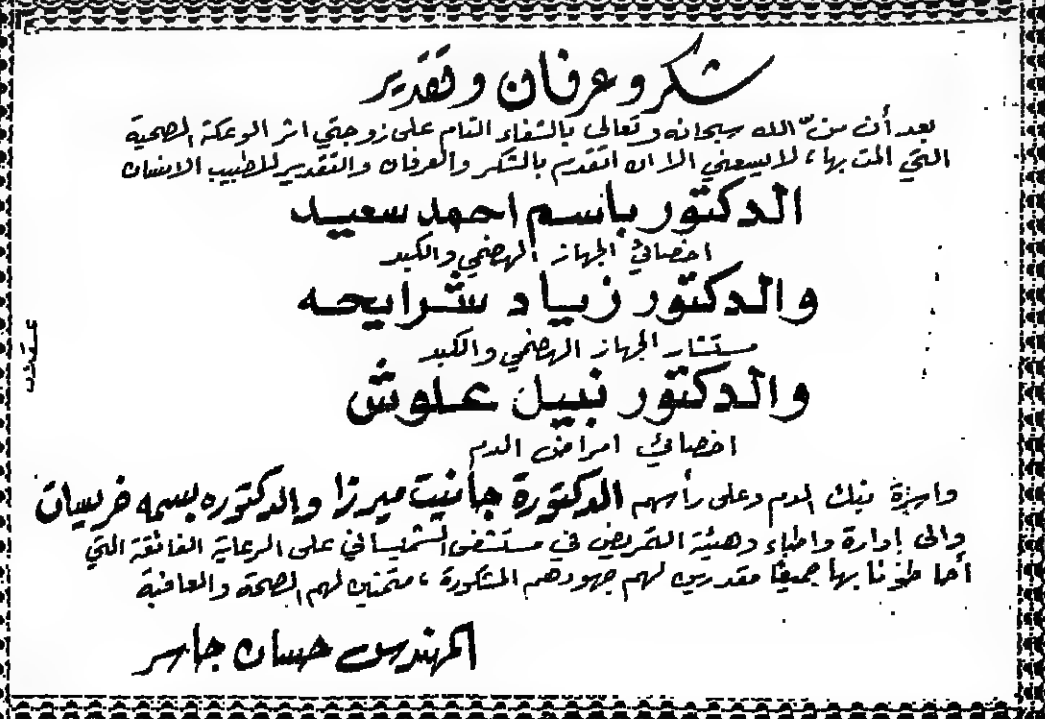 شكر وعرفان وتقدير
بعد أن منّ الله سبحانه وتعالى بالشفاء التام على زوجتي اثر الوعكة الصحية
التي المت بها، لا يسعني الا ان اتقدم بالشكر والعرفان والتقدير للطبيب الانسان
الدكتور باسم احمد سعيد
اخصائي الجهاز الهضمي والكبد
والدكتور زياد شرايحه
مستشار الجهاز الهضمي والكبد
والدكتور نبيل علوش
اخصائي امراض الدم
واسرة بنك الدم وعلى رأسهم الدكتورة جانيت ميرزا والدكتوره بسمه خريسات
والى إدارة واطباء وهيئة التمريض في مستشفى الشميساني على الرعاية الفائقة التي
أحاطونا بها جميعًا مقدرين لهم جهودهم المشكورة، متمنين لهم الصحة والعافية
المهندس حسان جاسر